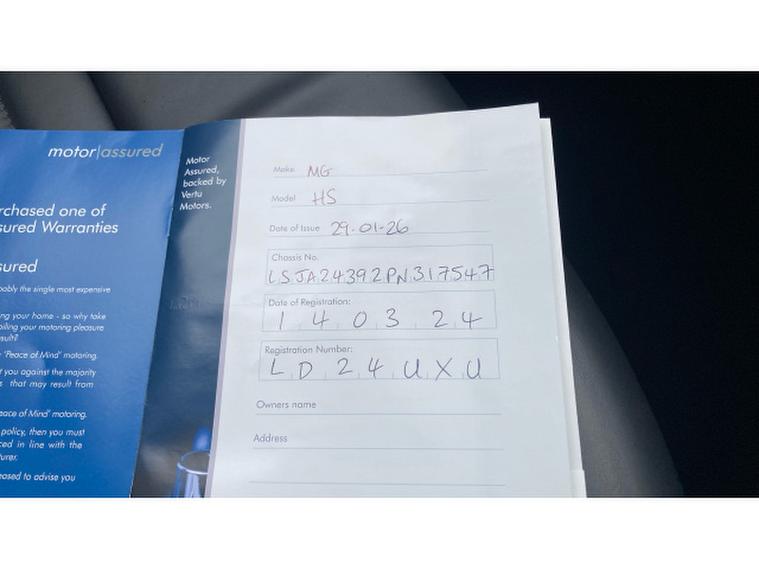 motor|assured
rchased one of
sured Warranties
sured
bably the single most expensive
ng your home - so why take
oiling your motoring pleasure
sult?
"Peace of Mind" motoring.
t you against the majority
s that may result from
eace of Mind" motoring.
policy, then you must
ced in line with the
turer.
eased to advise you
Motor
Assured,
backed by
Vertu
Motors.
Make MG
Model HS
Date of Issue 29-01-26
Chassis No.
LSJA24392PN317547
Date of Registration:
1 4 0 3 2 4
Registration Number:
L D 2 4 U X U
Owners name
Address